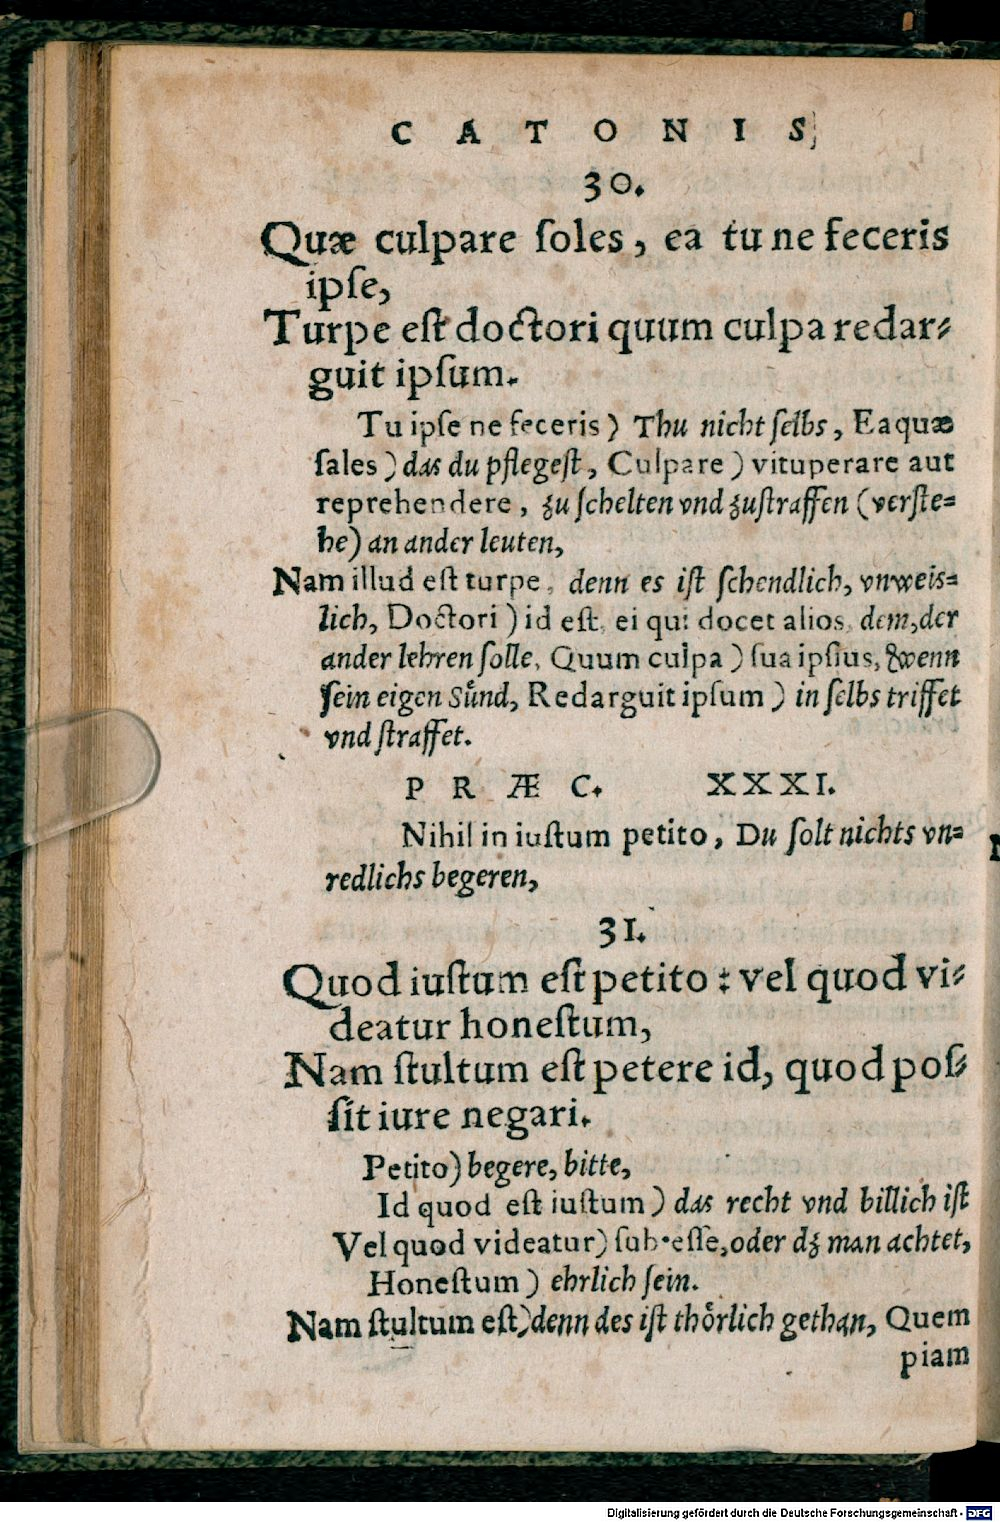 C A T O N I S
30.
Quæ culpare ſoles, ea tu ne feceris
ipſe,
Turpe eſt doctori quum culpa redar-
guit ipſum.
Tu ipſe ne feceris) Thu nicht ſelbs, Ea quæ
ſales) das du pflegeſt, Culpare) vituperare aut
reprehendere, zu ſchelten vnd zuſtraffen (verſte=
he) an ander leuten,
Nam illud eſt turpe, denn es iſt ſchendlich, vnweis=
lich, Doctori) id eſt, ei qui docet alios, dem, der
ander lehren ſolle, Quum culpa) ſua ipſius, wenn
ſein eigen Sünd, Redarguit ipſum) in ſelbs triffet
vnd ſtraffet.
P R Æ C. XXXI.
Nihil in iuſtum petito, Du ſolt nichts vn=
redlichs begeren,
31.
Quod iuſtum eſt petito: vel quod vi-
deatur honeſtum,
Nam ſtultum eſt petere id, quod poſ-
ſit iure negari.
Petito) begere, bitte,
Id quod eſt iuſtum) das recht vnd billich iſt
Vel quod videatur) ſub-eſſe, oder dz man achtet,
Honeſtum) ehrlich ſein.
Nam ſtultum eſt) denn des iſt thörlich gethan, Quem
piam
Digitalisierung gefördert durch die Deutsche Forschungsgemeinschaft - DFG